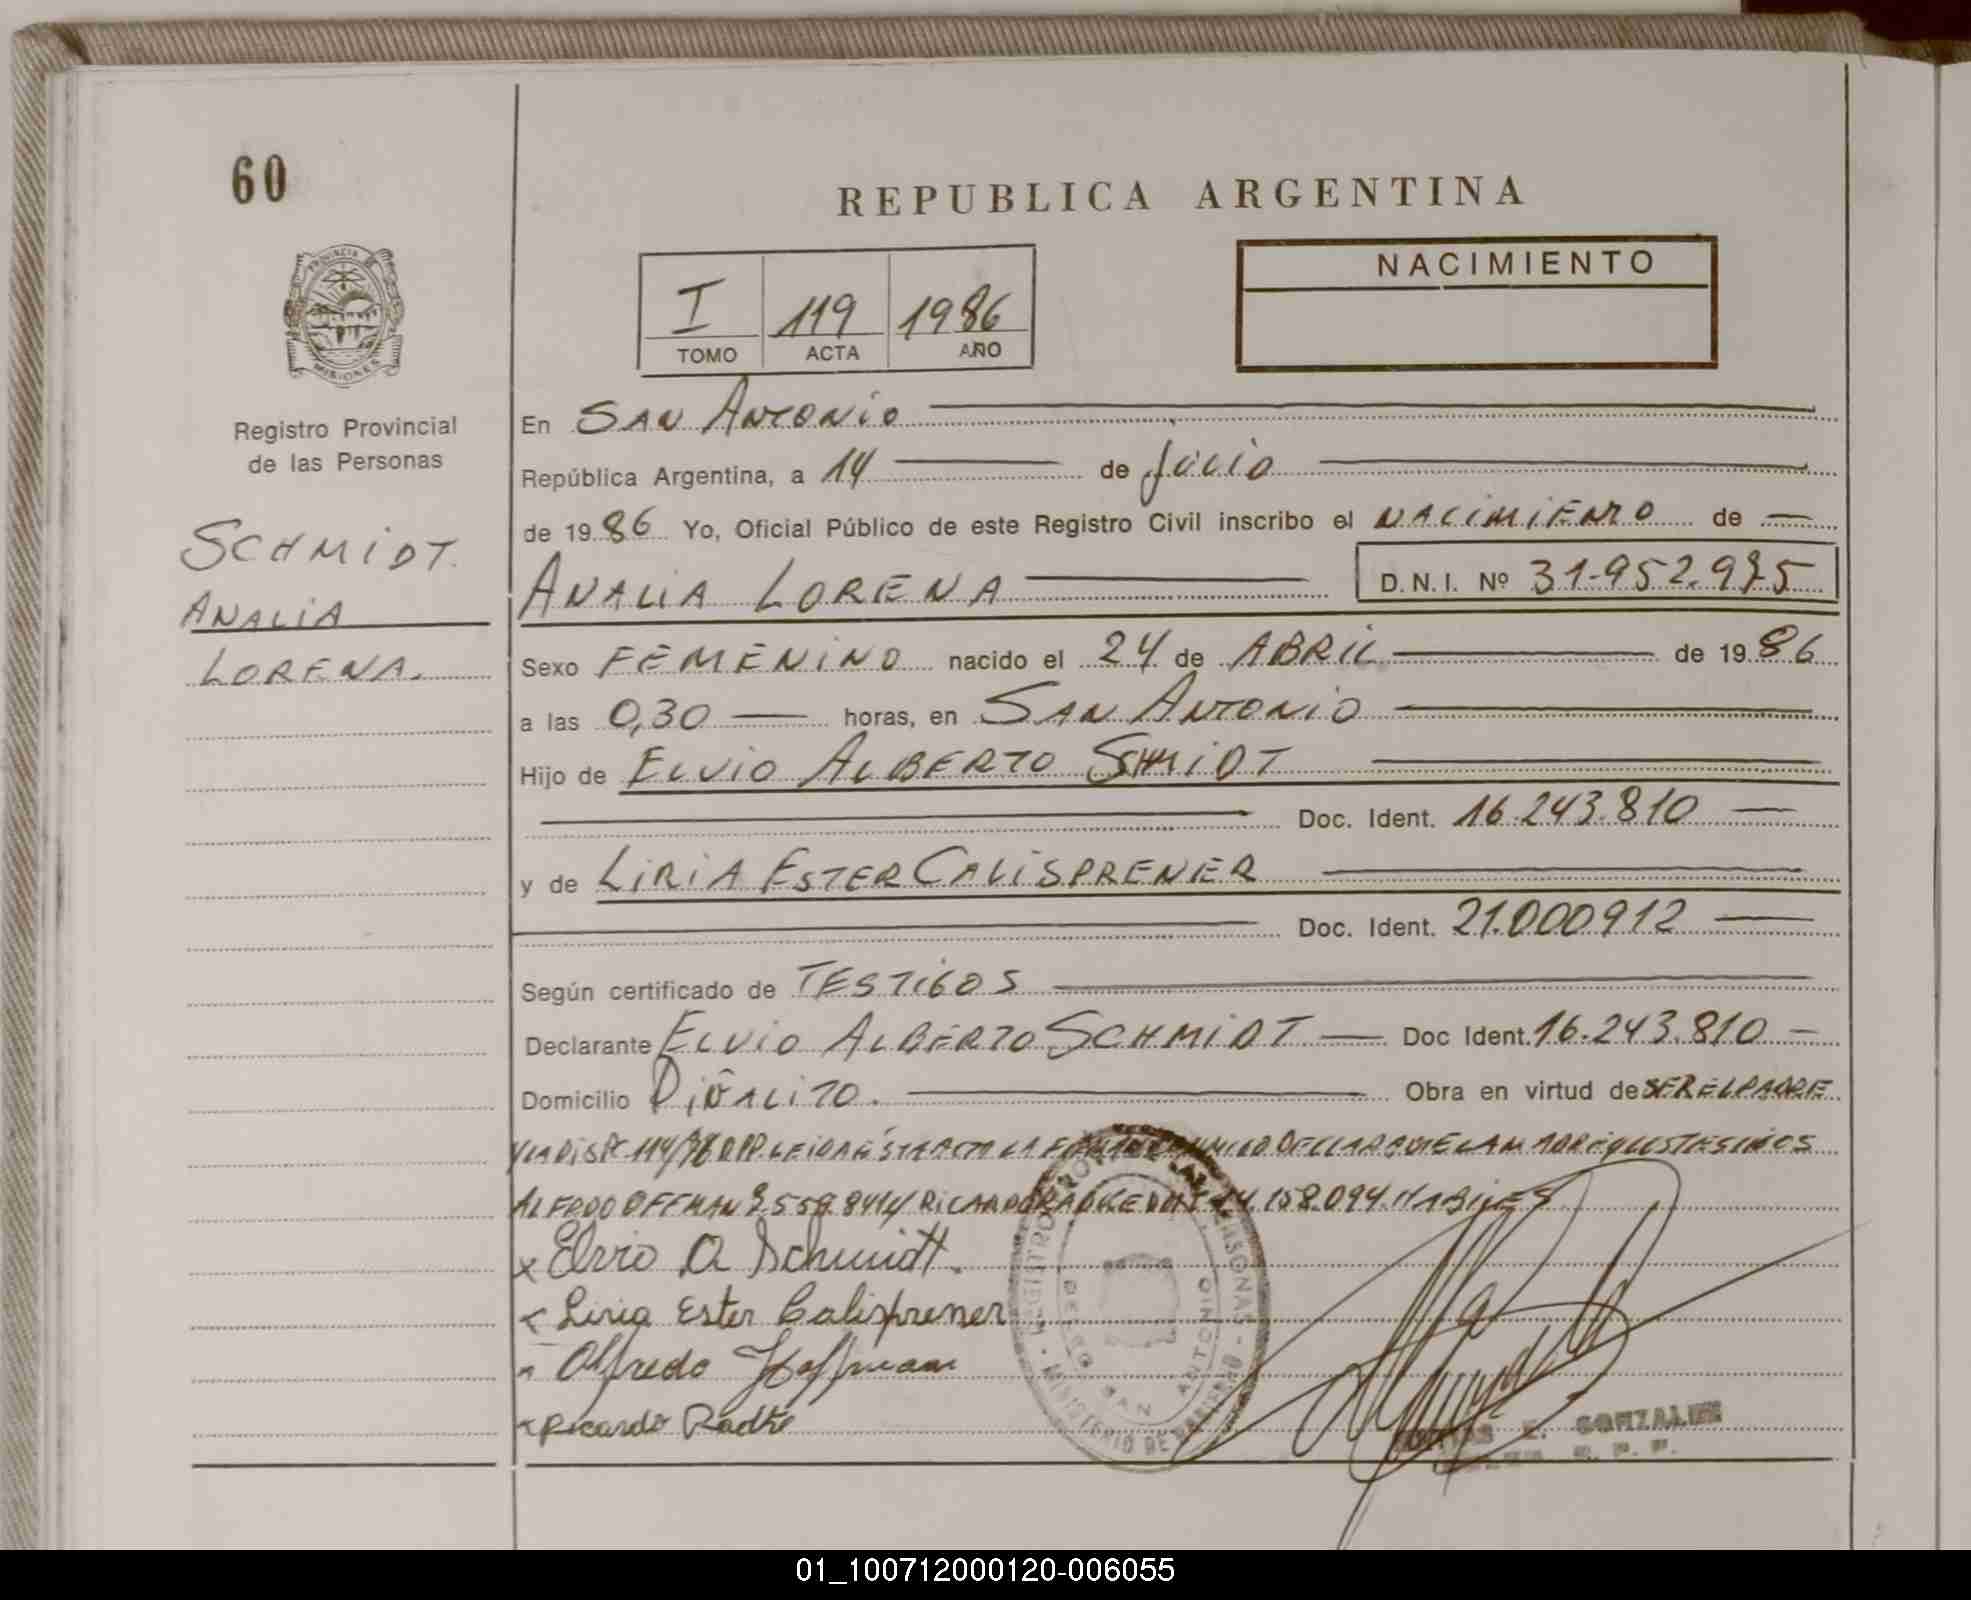 60
REPUBLICA ARGENTINA
NACIMIENTO
I 119 1986
TOMO ACTA AÑO
PROVINCIA DE
MISIONES
Registro Provincial
de las Personas
SCHMIDT.
ANALIA
LORENA.
En SAN ANTONIO
República Argentina, a 14 de Julio
de 1986 Yo, Oficial Público de este Registro Civil inscribo el NACIMIENTO de
ANALIA LORENA D.N.I. Nº 31.952.975
Sexo FEMENINO nacido el 24 de ABRIL de 1986
a las 0,30 horas, en SAN ANTONIO
Hijo de ELVIO ALBERTO SCHMIDT
Doc. Ident. 16.243.810
y de LIRIA ESTER CALISPRENER
Doc. Ident. 21.000912
Según certificado de TESTIGOS
Declarante ELVIO ALBERTO SCHMIDT Doc Ident. 16.243.810
Domicilio PIÑALITO. Obra en virtud de SER EL PADRE
114/78 LEIDA ESTA ACTA LA FIRMAN LA MADRE Y LOS TESTIGOS
ALFREDO OFFMAN RICARDO RADKE 158.094. HABILES
x Elvio A Schmidt.
x Liria Ester Calisprener
x Alfredo Hoffmann
x Ricardo Radke
MINISTERIO DE GOBIERNO
SAN ANTONIO
E. GONZALEZ
01_100712000120-006055